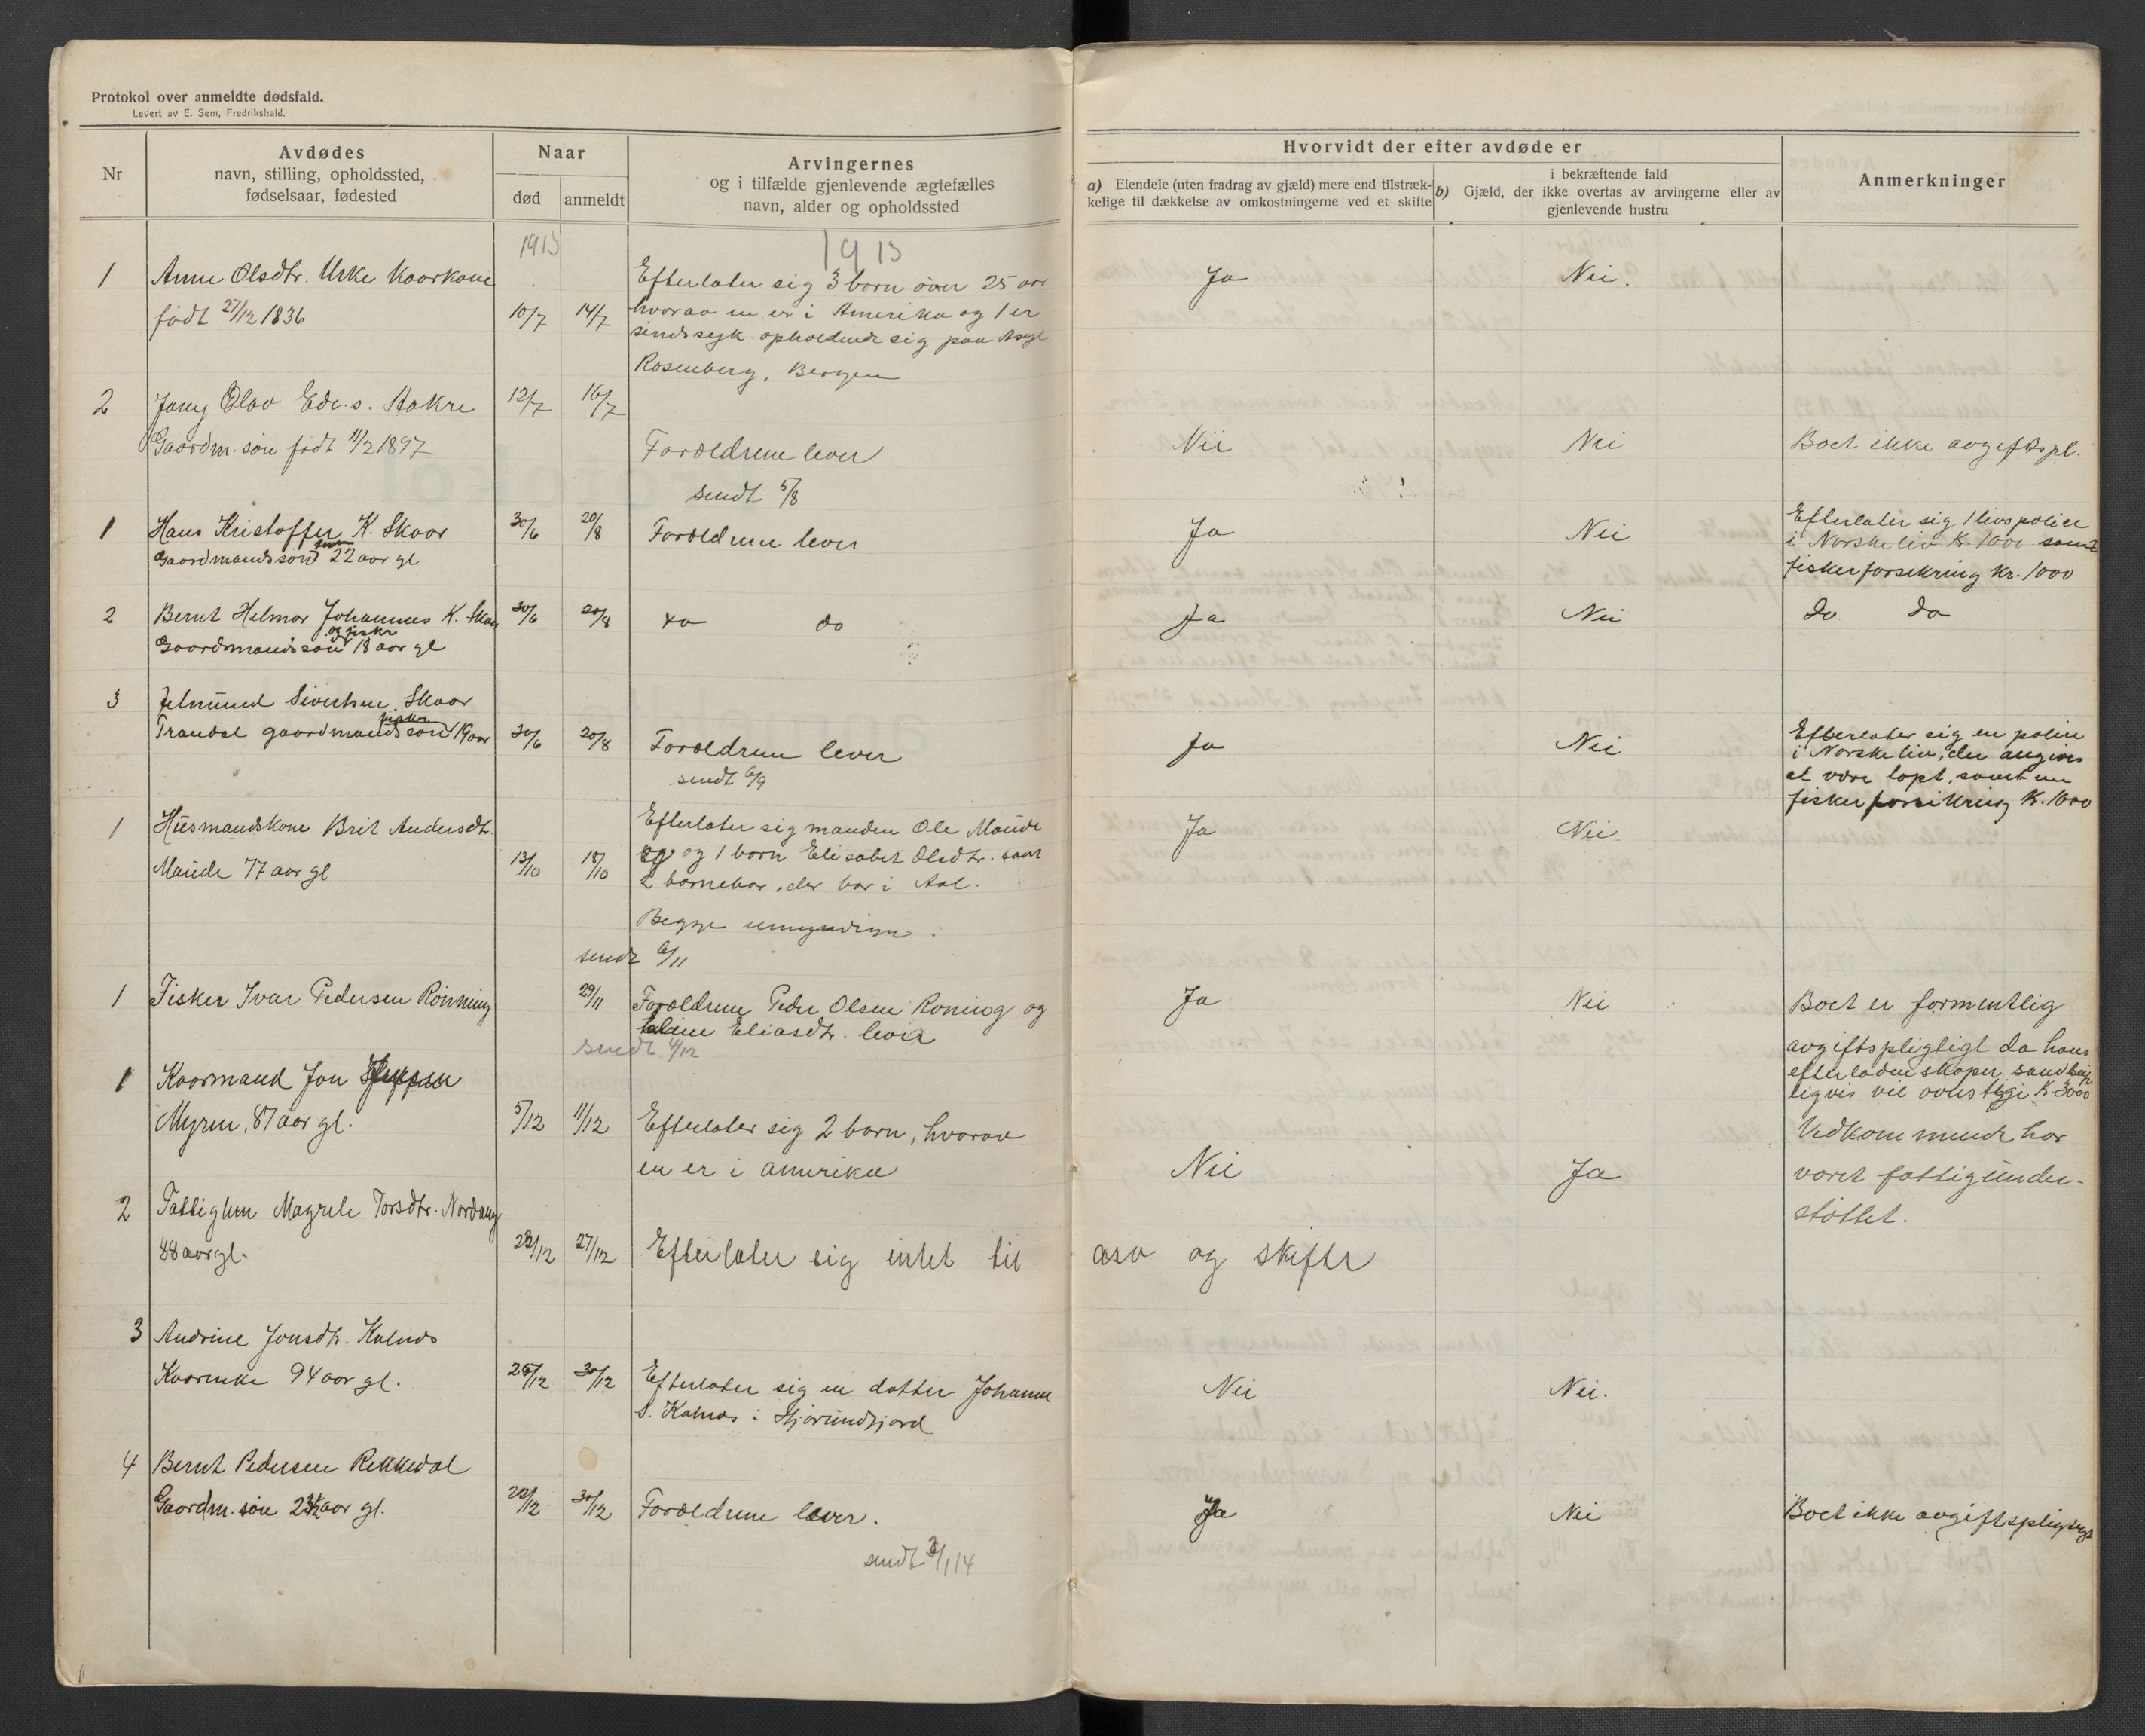 Protokol over anmeldte dødsfald.
Levert av E. Sem, Fredrikshald.
Nr
Avdødes
navn, stilling, opholdssted,
fødselsaar, fødested
Naar
død
anmeldt
Arvingernes
og i tilfælde gjenlevende ægtefælles
navn, alder og opholdssted
Hvorvidt der efter avdøde er
a) Eiendele (uten fradrag av gjæld) mere end tilstræk-
kelige til dækkelse av omkostningerne ved et skifte
i bekræftende fald
b) Gjæld, der ikke overtas av arvingerne eller av
gjenlevende hustru
Anmerkninger
1913
1913
1 Anne Olsdtr. Urke Kaarkone
født 27/12 1836 10/7 14/7
Efterlater sig 3 born over 25 aar
hvorav en er i Amerika og 1 er
sindssyk opholdende sig paa Asyl
Rosenberg, Bergen
Ja Nei.
2 Olav Edv.s. Stakre 12/7 16/7
Gaardm. søn født 11/2 1897
Forældrene lever
sendt 5/8
Nei Nei Boet ikke avgiftspl.
1 Hans Kristoffer K. Skaar 30/6 20/8 Forældrene lever
Gaardmandssøn 22 aar gl
Ja Nei
Efterlater sig 1 livspolice
i Norske liv Kr. 1000 samt
fiskerforsekring Kr. 1000
2 Bernt Helmar Johannes K. Skaar 30/6 20/8 do do
og fisker
Gaardmandssøn 18 aar gl
Ja Nei do do
3 Jetmund Sivertsen Skaar
fisker
Trandal gaardmandssøn 19 aar 30/6 20/8 Forældrene lever
sendt 6/9
Ja Nei
Efterlater sig en police
i Norske liv, der angives
at være løpt, samt en
fiskerforsikring K. 1000
1 Husmandskone Brit Andersdtr.
Maude 77 aar gl 13/10 18/10
Efterlater sig manden Ole Maude
og 1 born Elisabet Olsdtr. samt
2 barnebar, der bor i Aal.
Begge umyndige.
sendt 6/11
Ja Nei
1 Fisker Ivar Pedersen Rønning 29/11
Forældrene Peder Olsen Roning og
Eliasdtr. lever
sendt 4/12
Ja Nei
Boet er formentlig
avgiftspligtigt da hans
efterladenskaper sandsyn
ligvis vil overstige K 3000
1 Kaarmand Jon
Myren, 87 aar gl. 5/12 11/12
Efterlater sig 2 barn, hvorav
en er i amerika
Nei Ja
Vedkommende har
været fattigunder-
støttet.
2 Fattiglem Magrete Torsdtr. Nordang
88 aar gl. 23/12 27/12 Efterlater sig intet til arv og skifte
3 Andrine Jonsdtr. Kalnes
Kaarenke 94 aar gl. 26/12 30/12
Efterlater sig en datter Johanne
S. Kalnes i Hjørundfjord
Nei Nei.
4 Bernt Pedersen Rekkedal
Gaardm. søn 23½ aar gl. 22/12 30/12 Forældrene lever.
sendt 3/1 14
Ja Nei Boet ikke avgiftspligtigt